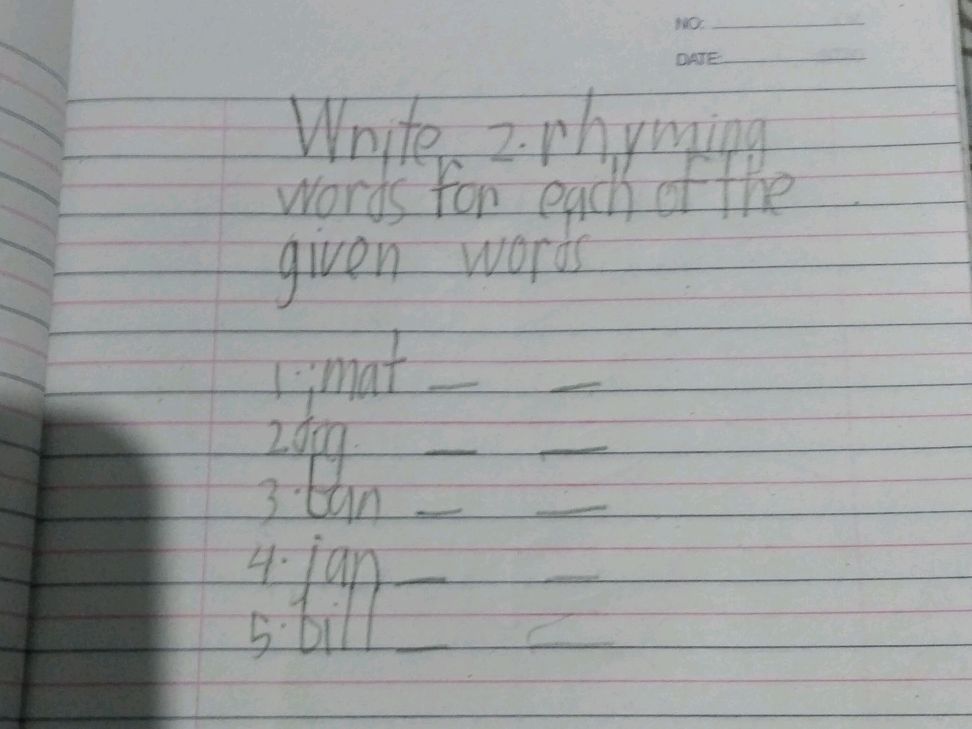 NO:
DATE:
Write 2. rhyming
words for each of the
given words
1. mat
2 dog.
3. tan
4. jan
5. bill